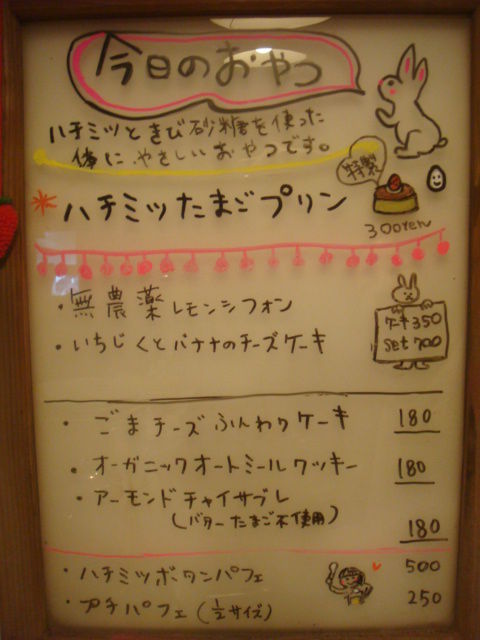 今日のおやつ
ハチミツときび砂糖を使った
体にやさしいおやつです。
特製
ハチミツたまごプリン
300yen
・無農薬レモンシフォン
・いちじくとバナナのチーズケーキ
ケーキ350
set700
・ごまチーズふんわりケーキ 180
・オーガニックオートミールクッキー 180
・アーモンドチャイサブレ
(バターたまご不使用)
180
・ハチミツボタンパフェ 500
・プチパフェ(1/2サイズ) 250